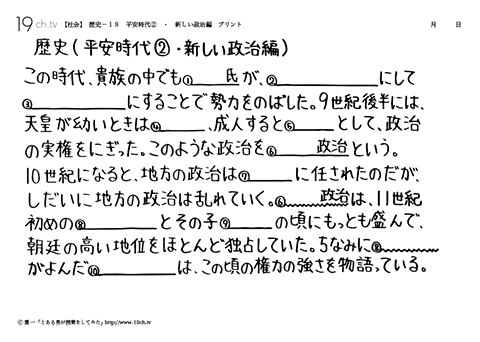 19ch.tv 【社会】 歴史－18 平安時代② ・ 新しい政治編 プリント 月 日
歴史(平安時代②・新しい政治編)
この時代、貴族の中でも①＿＿＿氏が、②＿＿＿＿＿＿にして
③＿＿＿＿＿＿にすることで勢力をのばした。9世紀後半には、
天皇が幼いときは④＿＿＿、成人すると⑤＿＿＿として、政治
の実権をにぎった。このような政治を⑥＿＿＿政治という。
10世紀になると、地方の政治は⑦＿＿＿に任されたのだが、
しだいに地方の政治は乱れていく。⑥＿＿＿政治は、11世紀
初めの⑧＿＿＿＿＿とその子⑨＿＿＿の頃にもっとも盛んで、
朝廷の高い地位をほとんど独占していた。ちなみに⑧＿＿＿＿
がよんだ⑩＿＿＿＿＿は、この頃の権力の強さを物語っている。
©葉一「とある男が授業をしてみた」http://www.19ch.tv